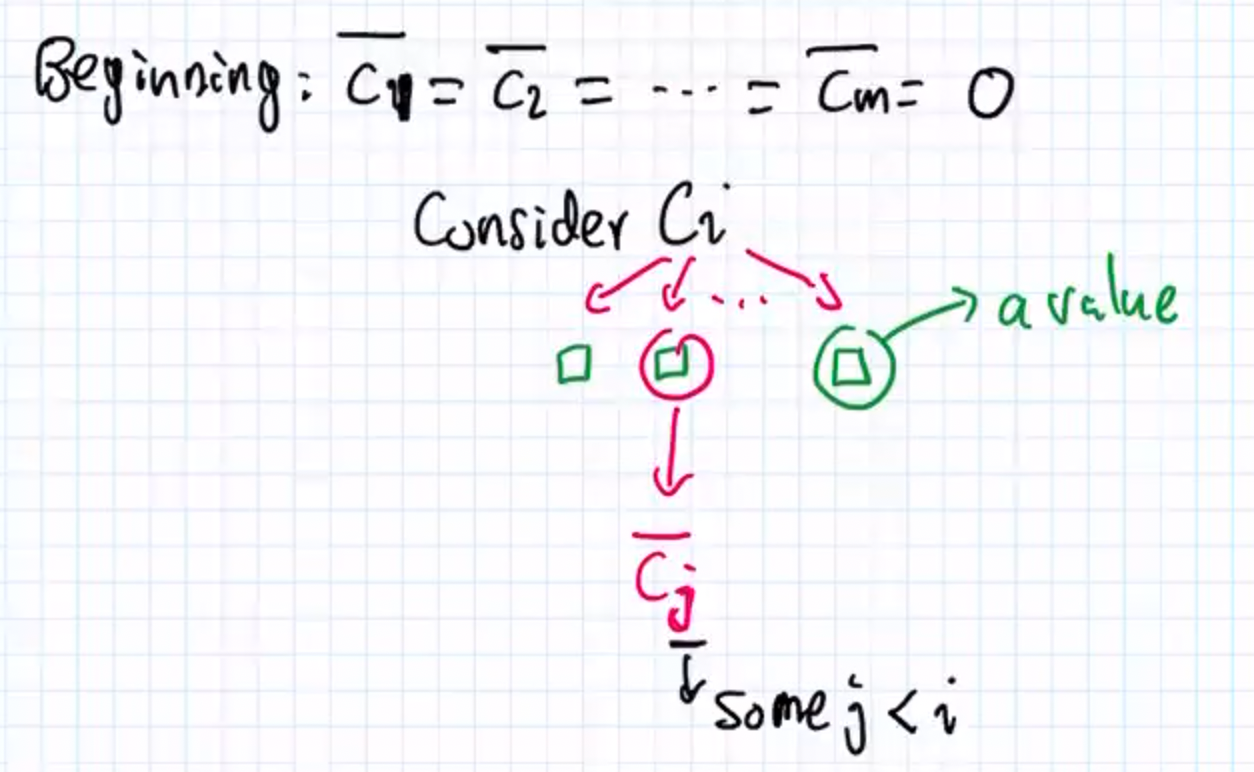 Beginning: C̅₁ = C̅₂ = ... = C̅m = 0
Consider Ci
...
a value
C̅j
some j < i